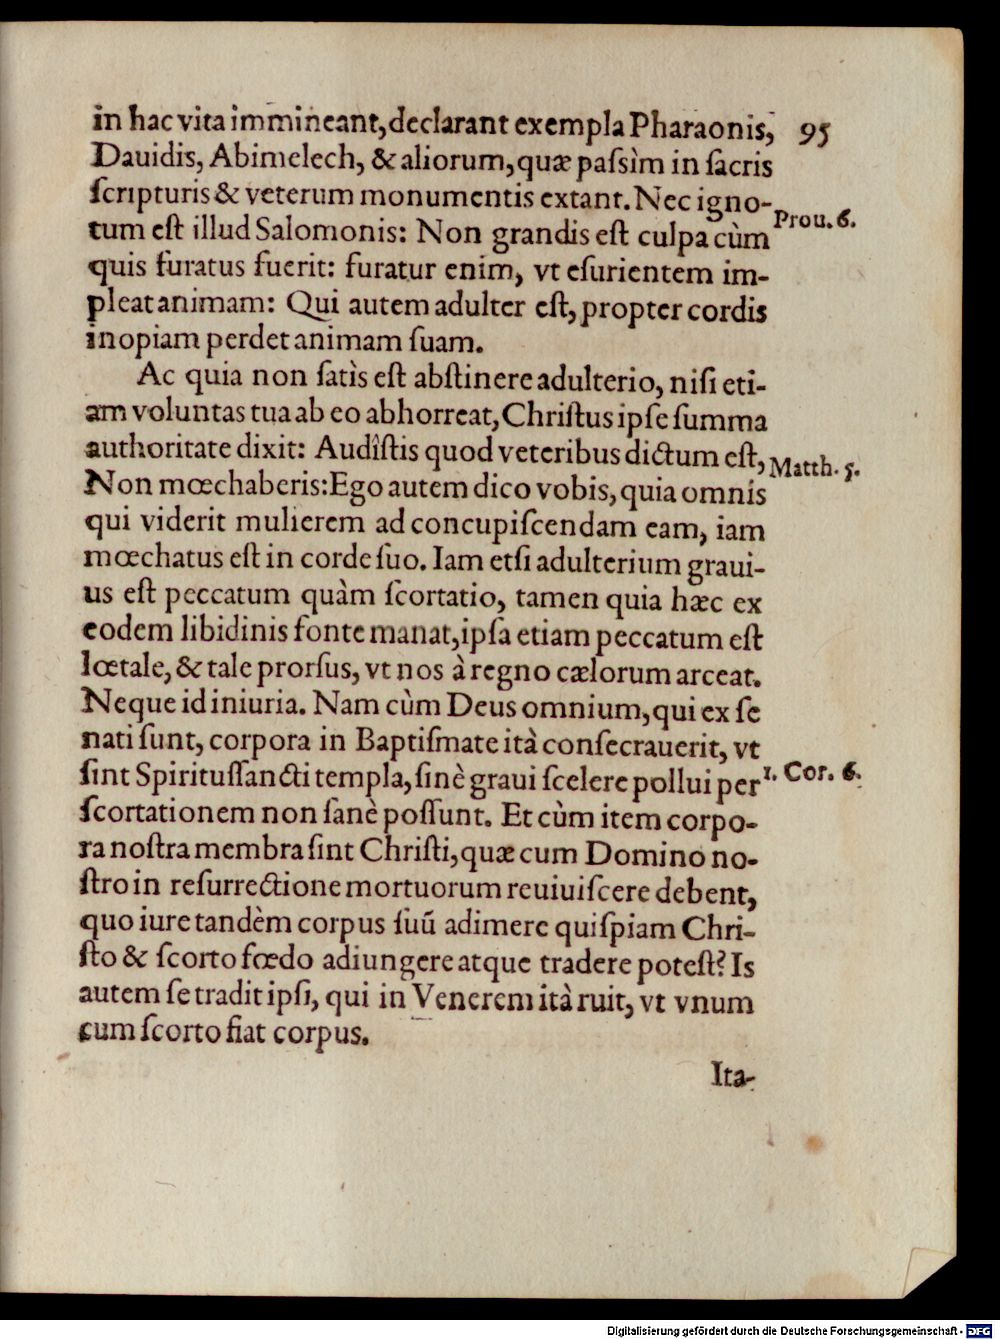 in hac vita immineant, declarant exempla Pharaonis, 95
Dauidis, Abimelech, & aliorum, quæ paſsìm in ſacris
ſcripturis & veterum monumentis extant. Nec igno-
Prou. 6.
tum eſt illud Salomonis: Non grandis eſt culpa cùm
quis furatus fuerit: furatur enim, vt eſurientem im-
pleat animam: Qui autem adulter eſt, propter cordis
inopiam perdet animam ſuam.
Ac quia non ſatìs eſt abſtinere adulterio, niſi eti-
am voluntas tua ab eo abhorreat, Chriſtus ipſe ſumma
authoritate dixit: Audîſtis quod veteribus dictum eſt,
Matth. 5.
Non mœchaberis: Ego autem dico vobis, quia omnis
qui viderit mulierem ad concupiſcendam eam, iam
mœchatus eſt in corde ſuo. Iam etſi adulterium graui-
us eſt peccatum quàm ſcortatio, tamen quia hæc ex
eodem libidinis fonte manat, ipſa etiam peccatum eſt
lœtale, & tale prorſus, vt nos à regno cælorum arceat.
Neque id iniuria. Nam cùm Deus omnium, qui ex ſe
nati ſunt, corpora in Baptiſmate ità conſecrauerit, vt
ſint Spirituſſancti templa, ſinè graui ſcelere pollui per
1. Cor. 6.
ſcortationem non ſanè poſſunt. Et cùm item corpo-
ra noſtra membra ſint Chriſti, quæ cum Domino no-
ſtro in reſurrectione mortuorum reuiuiſcere debent,
quo iure tandèm corpus ſuũ adimere quiſpiam Chri-
ſto & ſcorto fœdo adiungere atque tradere poteſt? Is
autem ſe tradit ipſi, qui in Venerem ità ruit, vt vnum
cum ſcorto fiat corpus.
Ita-
Digitalisierung gefördert durch die Deutsche Forschungsgemeinschaft - DFG